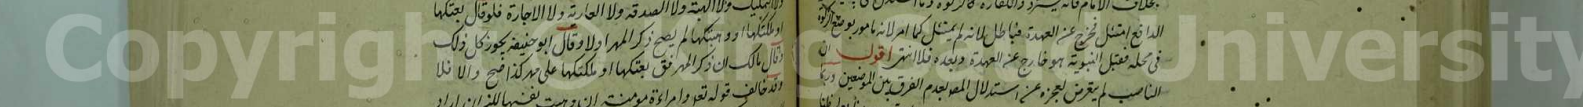 بخلاف الامام فانه يسترد والكفارة كالزكوة
الدافع امتثل فخرج عن العهدة فباطل لانه لم يمتثل كما امر لانه مأمور بوضع الزكوة
في محله فقبل هو خارج عن العهدة وبعده فلا انتهى اقول ان
الناصب لم يتعرض لعجزه عن استدلال المص بعدم الفرق بين الموضعين
ولا التمليك ولا الهبة ولا الصدقة ولا العارية ولا الاجارة فلو قال بعتكها
او ملكتكها او وهبتكها لم يصح ذكر المهر اولا وقال ابو حنيفة يجوز كل ذلك
وقال مالك ان ذكر المهر فق بعتكها او ملكتكها على مهر كذا صح والا فلا
وقد خالف قوله تعه وامراءة مومنة ان وهبت نفسها للنبي ان اراد
Copyright University